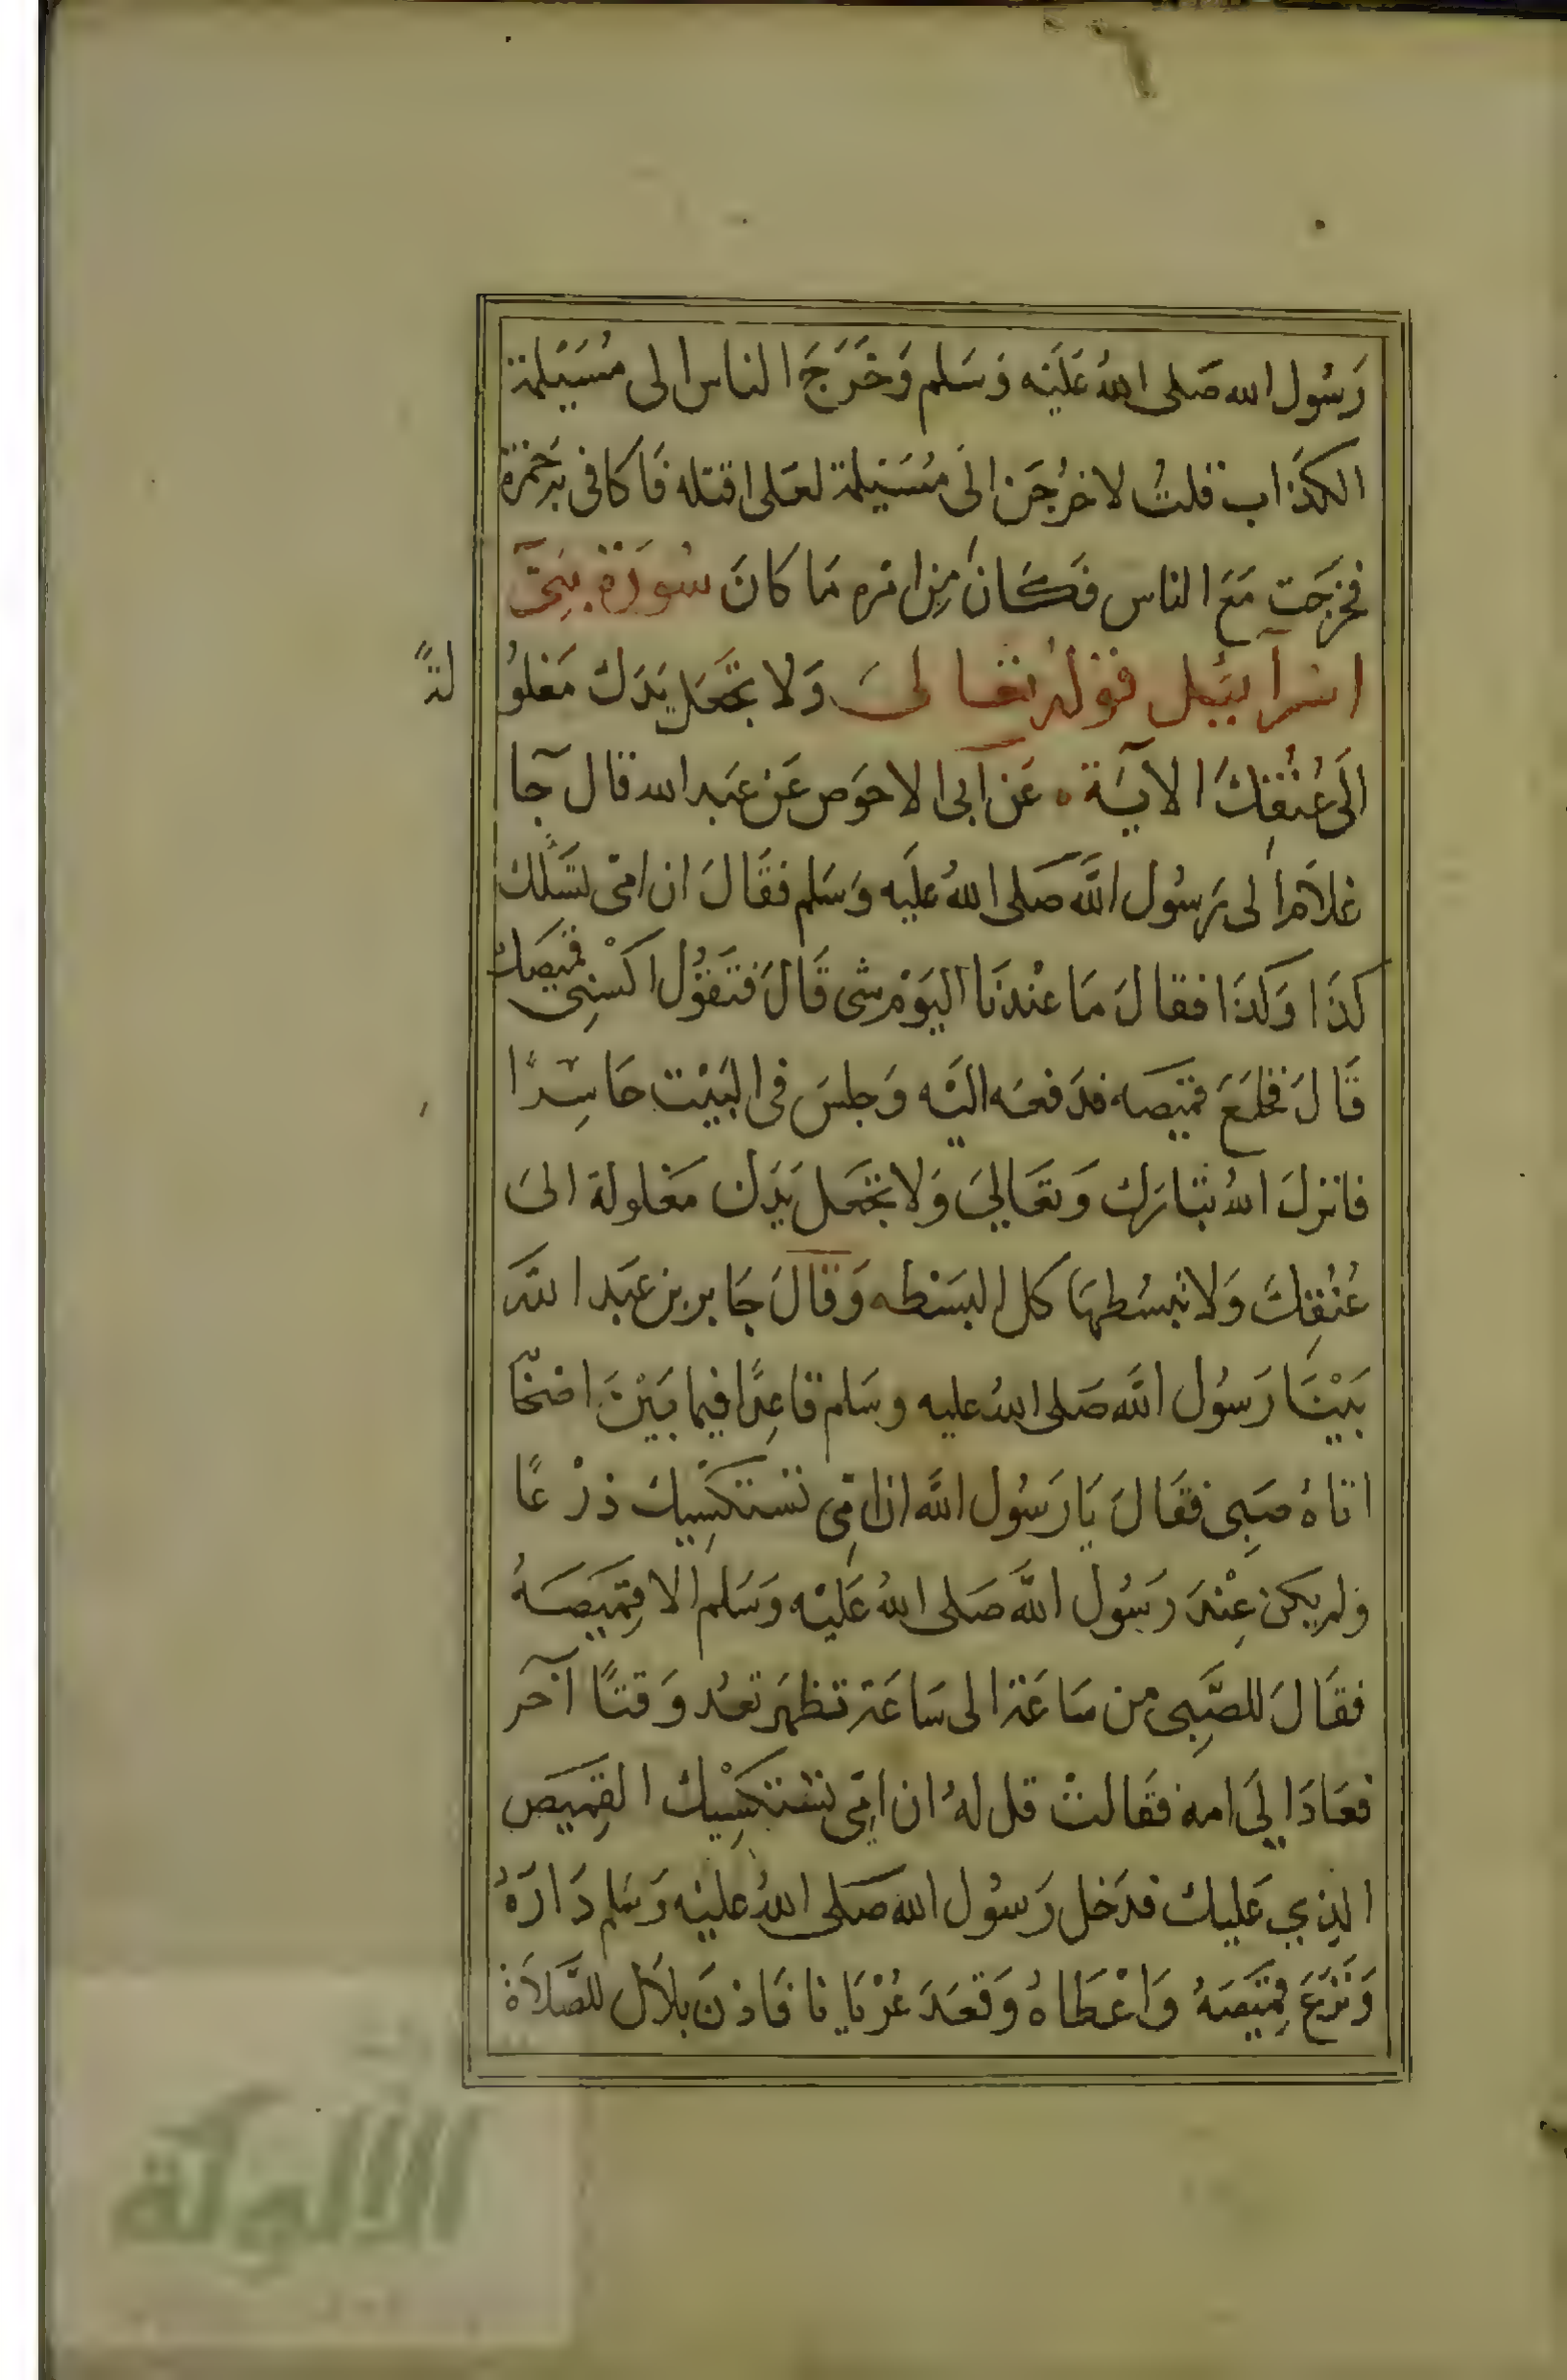 رَسُول الله صَلى اللهُ عَلَيْه وَسَلم وَخَرَجَ الناس الى مُسَيْلمة
الكذَاب قلتُ لاخرُجَن الَى مُسَيْلمة لعَلى اقتله فَاكافى به حَمزة
فخرَجَت مَعَ الناس فَكَانَ مِن امره مَا كانَ سُورَة بَنِىٓ
اسرآئيل قوْلهُ تعَالىَ وَلا تجَعَل يَدَكَ مَغلوُ لةً
الَى عُنُقِكَ الآيَة ه عَن ابى الاحوَص عَن عَبد الله قال جآ
غلاَم الى رَسُول اللَّه صَلى اللهُ علَيه وَسَلم فقَالَ ان امّى تسَئلك
كذَا وَكذَا فقالَ مَا عنْدنَا اليَوْم شى قَالَ فتَقوُل اكْسُنِى قميَصكَ
قَالَ فخلَعَ قميَصه فدَفعَه اليْه وَجلسَ فى البَيْت حَاسِرًا
فانزلَ اللهُ تبَارَك وَتعَاليَ وَلا تجعَل يَدَك مَغلولة الىَ
عُنُقِكَ وَلا تبسُطهَا كل البَسْطه وَقالَ جَابر بن عَبد اللَّه
بَيْنَا رَسُول اللَّه صَلى اللهُ عليه وسَلم قاعِدًا فيما بَيْنَ اصْحَا
اتاهُ صَبِى فقَالَ يَا رَسُول اللَّه ان امِّى تسْتكسِيْكَ دْرعًا
ولم يكن عِنْدَ رَسُول اللَّه صَلى اللهُ عَليْه وَسَلم الا قِميَصَهُ
فقَالَ للصَّبِى من سَاعَة الى سَاعَة تظهَر تعُد وَقتًا آخر
فعَادَ اِلَى امه فقَالتْ قل لهُ ان امِّى تسْتكسِيْك القِميَص
الذِي عَليك فدَخل رَسُول الله صَلى اللهُ عليْه وَسَلم دَارَهُ
وَنَزعَ قِميَصَهُ وَاعْطَاهُ وَقعَدَ عُرْيَانا فَاذنَ بلاَل للصَّلاَة